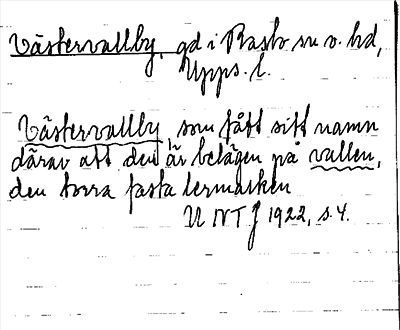 Västervallby, gd i Rasbo sn o. hd,
Upps. l.
Västervallby, som fått sitt namn
därav att den är belägen på vallen,
den torra fasta lermarken
UNTJ 1922, s. 4.